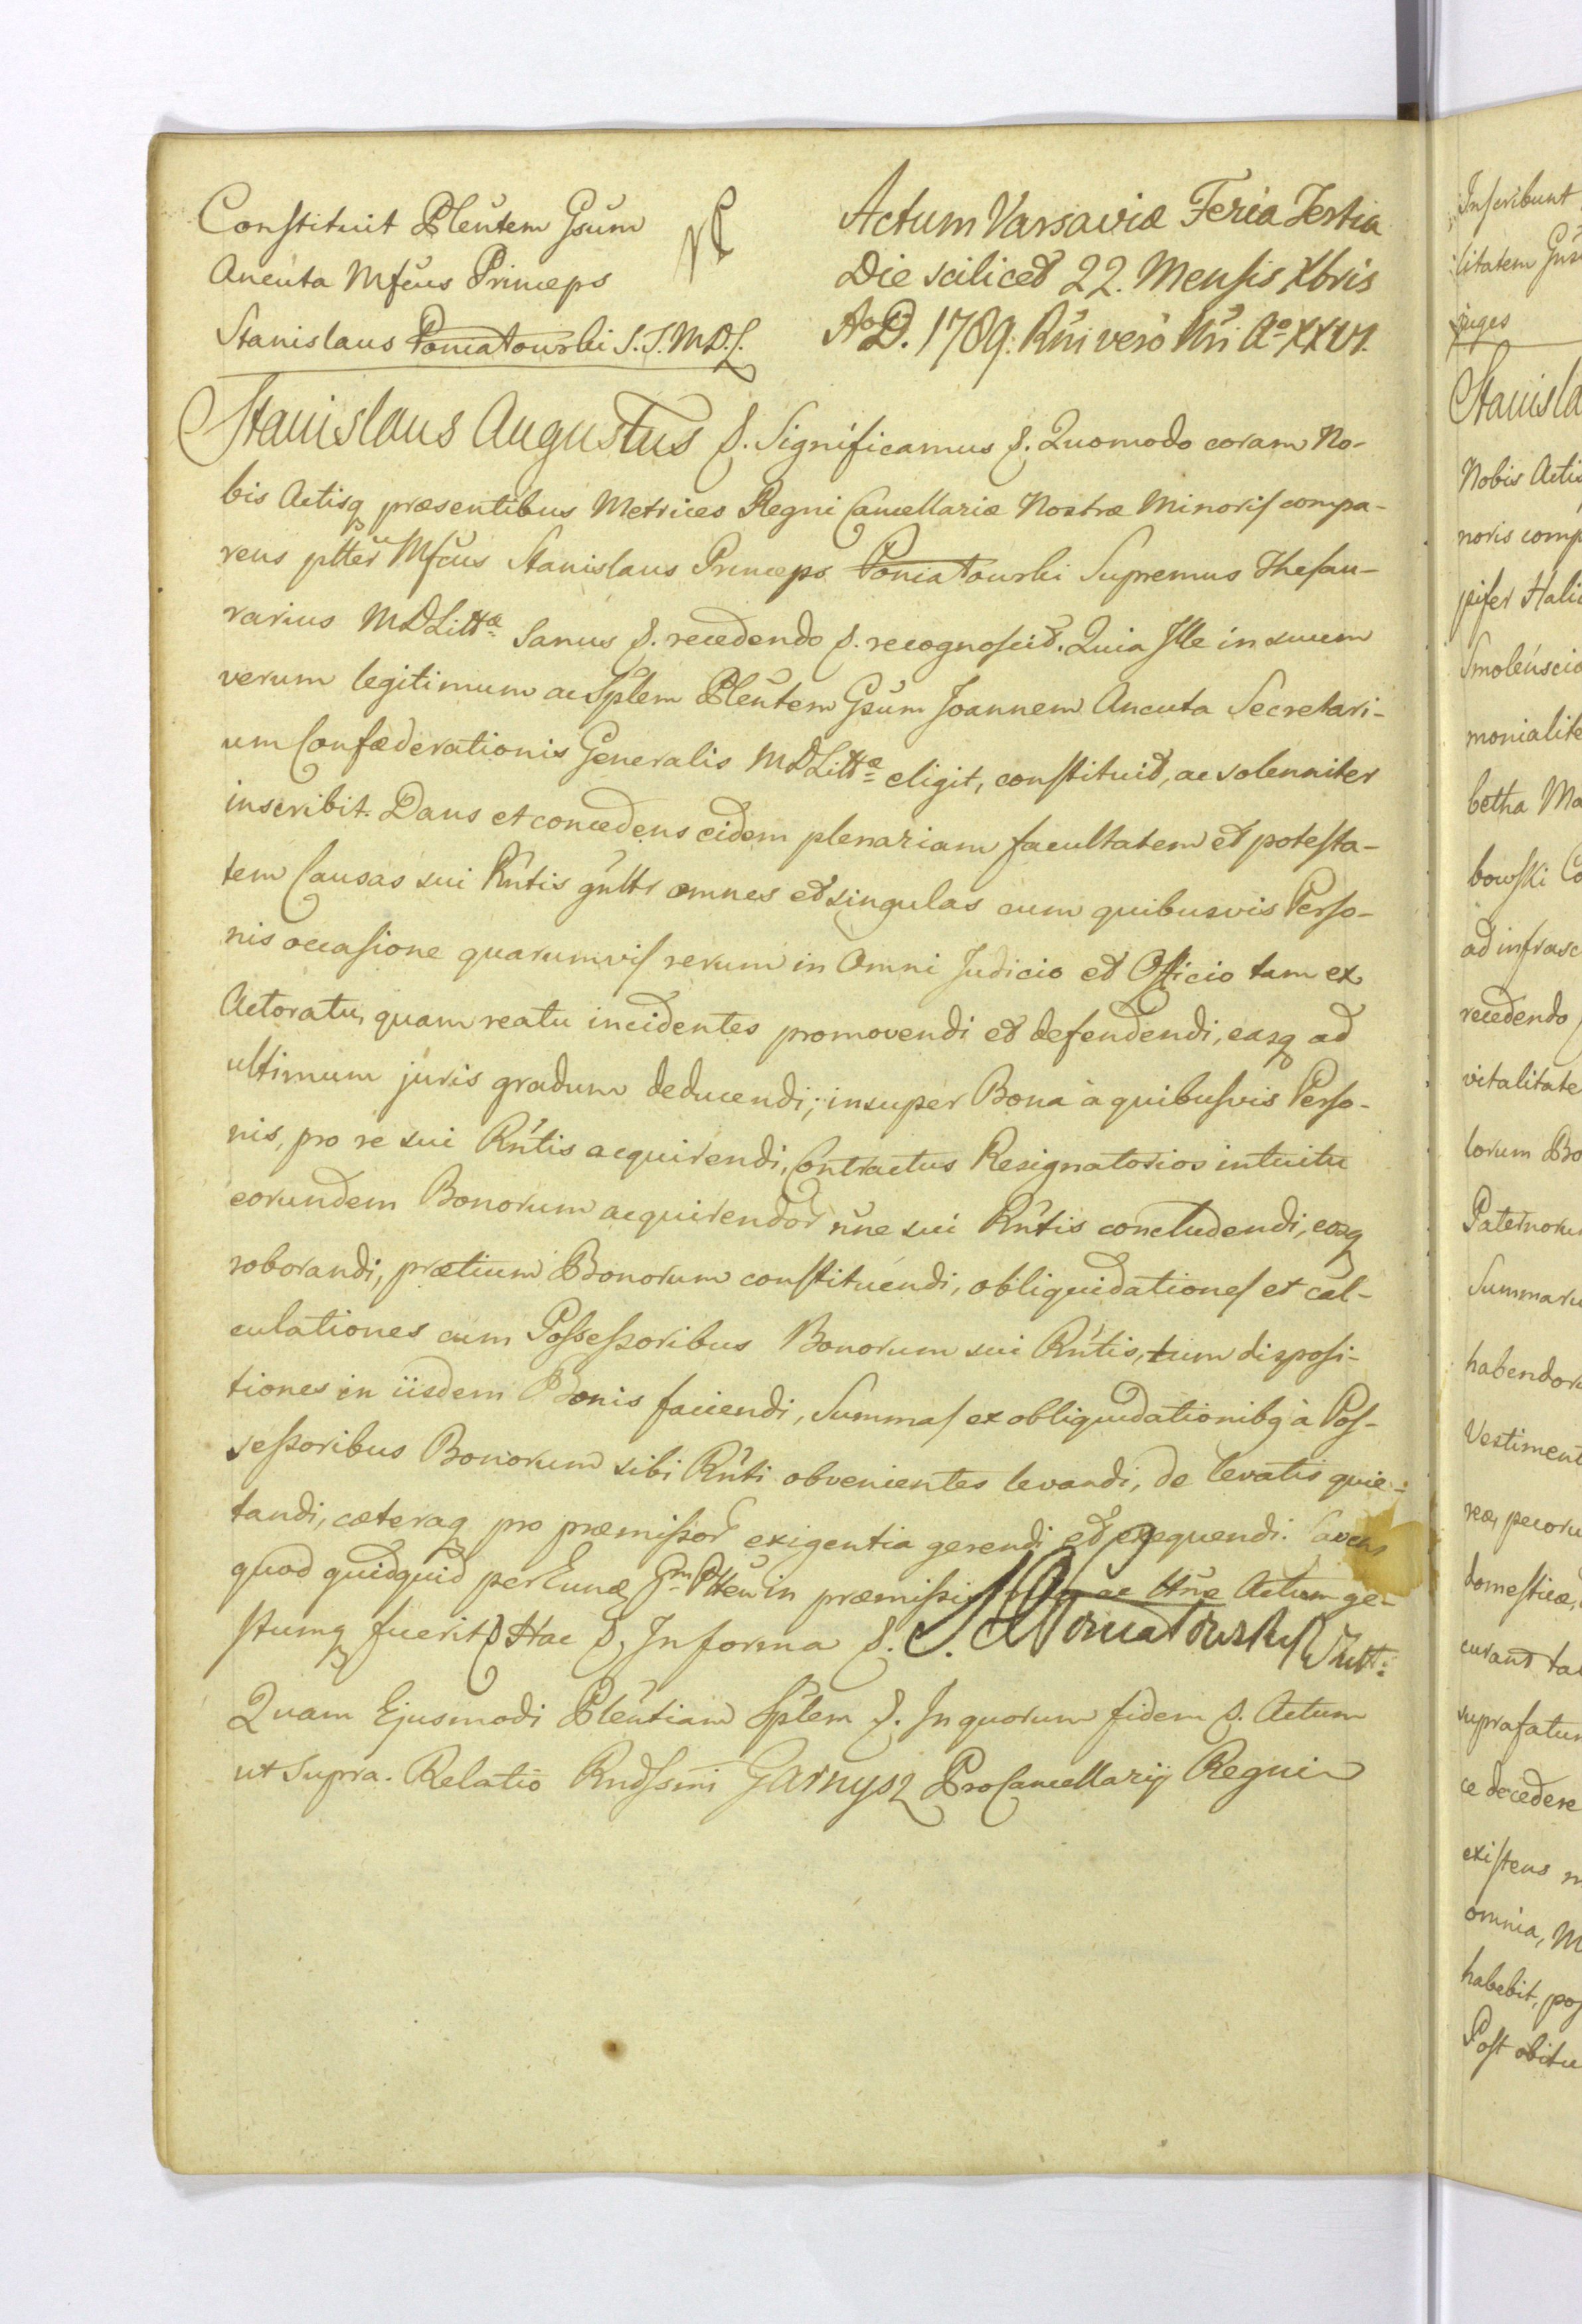 Constituit Plentem Gsum
Ancuta Mfcus Princeps
Stanislaus Poniatowski S. T. M D. L.
Actum Varsaviæ Feria Tertia
Die scilicet 22. Mensis Xbris
Ao D. 1789. Rni vero Nri Ao XXVI.
Stanislaus Augustus &. Significamus &. Quomodo coram No-
bis Actisq præsentibus Metrices Regni Cancellariæ Nostræ Minoris compa-
rens pltter Mfcus Stanislaus Princeps Poniatowski Supremus Thesau-
rarius MDLittæ Sanus &. recedendo &. recognoscit. Quia Ille in suum
verum legitimum ac Splem Plentem Gsum Joannem Ancuta Secretari-
um Confæderationis Generalis MDLittæ eligit, constituit, ac solenniter
inscribit. Dans et concedens eidem plenariam facultatem et potesta-
tem Causas sui Rntis gnltr omnes et singulas cum quibusvis Perso-
nis occasione quarumvis rerum in Omni Judicio et Officio tam ex
Actoratu, quam reatu incidentes promovendi et defendendi, easq ad
ultimum juris gradum deducendi; insuper Bona à quibusvis Perso-
nis, pro re sui Rntis acquirendi, Contractus Resignatorios intuitu
eorundem Bonorum acquirendor nne sui Rntis concludendi, eosq
roborandi, prætium Bonorum constituendi, obliquidationes et cal-
culationes cum Possessoribus Bonorum sui Rntis, tum disposi-
tiones in iisdem Bonis faciendi, Summas ex obliquidationibq à Pos-
sessoribus Bonorum sibi Rnti obvenientes levandi, de levatis quie-
tandi, cæteraq pro præmissor exigentia gerendi et exequendi. Cavens
quod quidquid per Eund Gm Ptten in præmissis ac Ttne Actum ge-
stumq fuerit & Hac &, In forma &. S. Poniatowski
Quam Ejusmodi Plentiam Splem &. In quorum fidem &. Actum
ut supra. Relatio Rndssmi Garnysz ProCancellarij Regni
Inscribunt
litatem
juges
Stanisla
Nobis Actis
noris comp
pifer Hali
Smolenscio
monialite
betha Ma
bowski Co
ad infrasc
recedendo
vitalitate
lorum Bo
Paternoru
Summaru
habendor
Vestiment
reæ, pecoru
domesticæ,
curant ta
suprafatu
ce decedere
existens n
omnia, M
habebit, pos
Post obitu